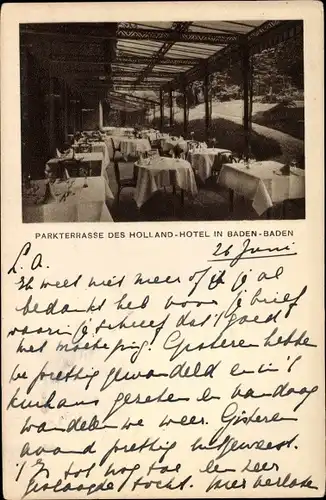 PARKTERRASSE DES HOLLAND-HOTEL IN BADEN-BADEN
26 Juni
L. A.
Ik weet niet meer of ik jou al
bedankt heb voor je brief
waarin je schreef dat 't goed
met moeke ging! Gisteren hebben
we prettig gewandeld en in 't
kurhaus gegeten en vandaag
wandelen we weer. Gisteren
avond prettig uitgeweest.
't Is tot nog toe een zeer
geslaagde tocht. Hier verloofde